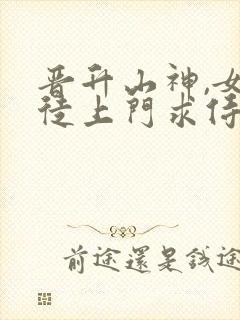 晋升山神,女
徒上門求侍
前途還是錢途